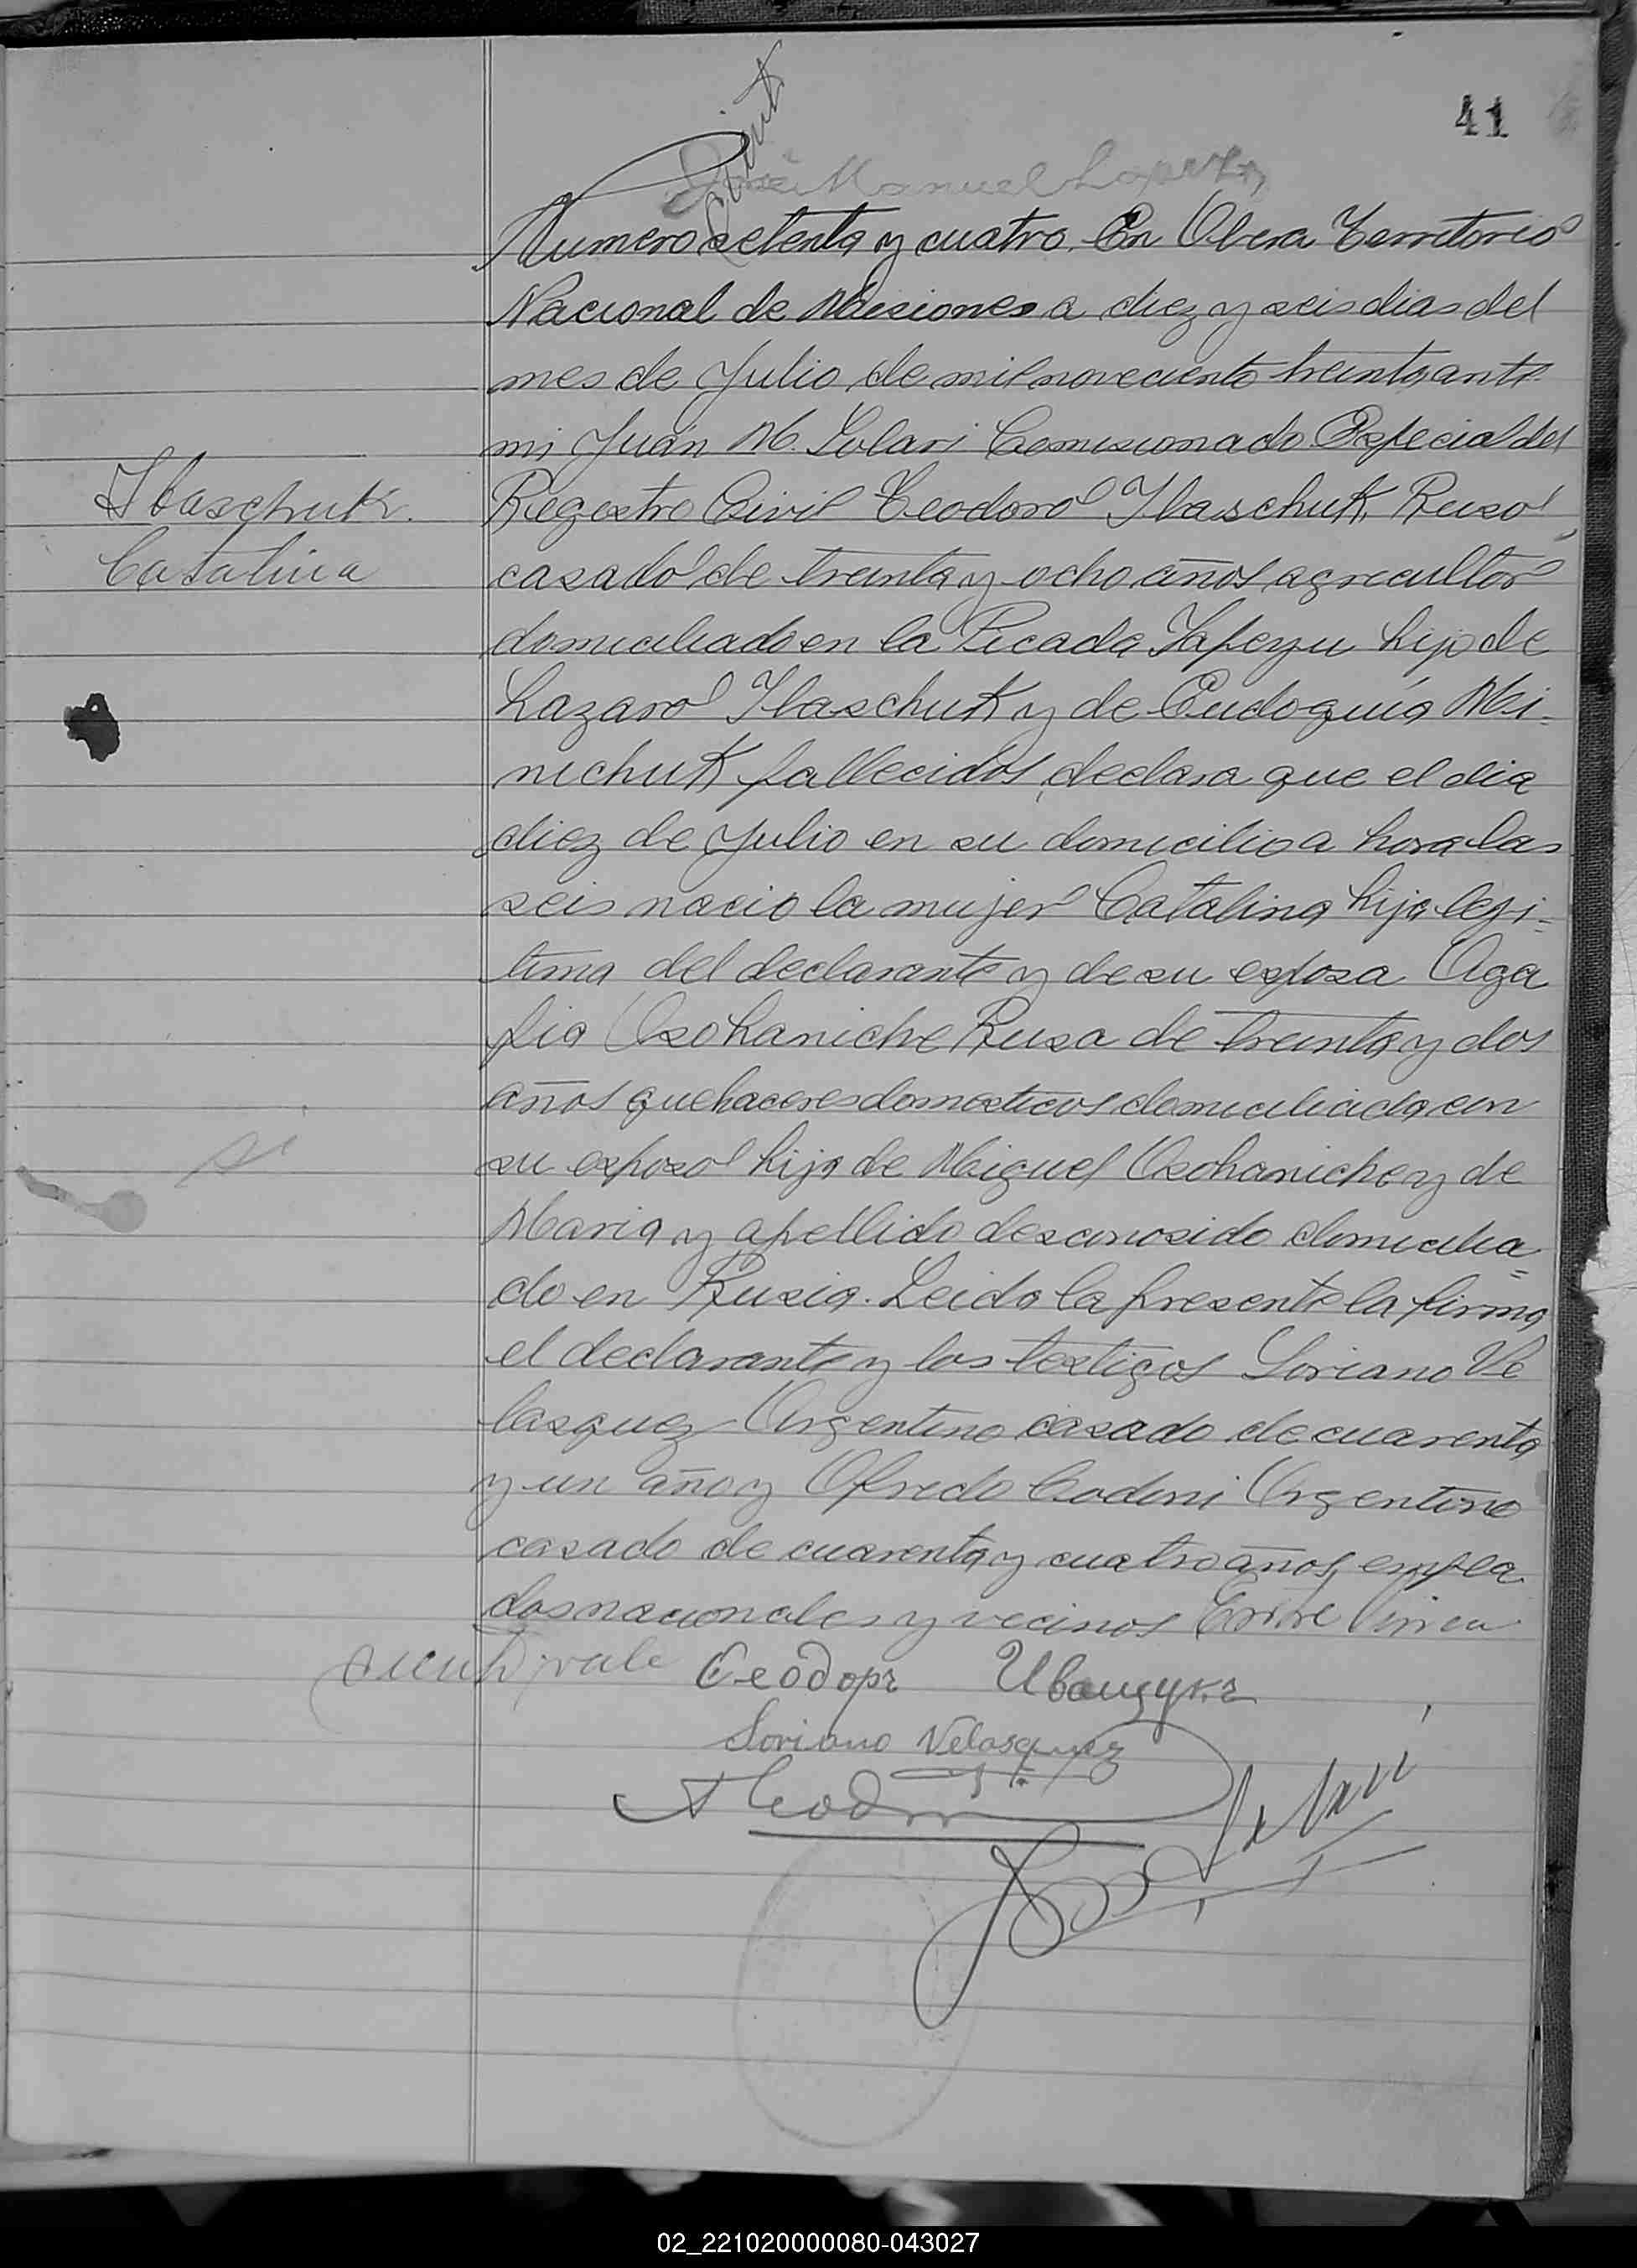 41
José Manuel Lopez
Numero setenta y cuatro. En Obera Territorio
Nacional de Misiones a diez y seis dias del
mes de Julio de mil noveciento treinta ante
mi Juan M. Solari Comisionado Especial del
Registro Civil Teodoro Ibaschuk, Ruso
Ibaschuk.
Catalina
casado de treinta y ocho años agricultor
domiciliado en la Picada Yapeyu hijo de
Lazaro Ibaschuk y de Eudoquia Mi-
nichuk fallecidos, declara que el dia
diez de Julio en su domicilio a hora las
seis nacio la mujer Catalina hija legi-
tima del declarante y de su esposa Aga
fia Osohaniche Rusa de treinta y dos
años quehaceres domesticos domiciliada en
su esposo hija de Miguel Osohaniche y de
Maria y apellido desconosido domicilia=
do en Rusia. Leida la presente la firma
el declarante y los testigos Soriano Ve
lasquez Argentino casado de cuarenta
y un año y Afredo Codini Argentino
casado de cuarenta y cuatro años, emplea
dos nacionales y vecinos Entre linea
vale
Ѳеодоръ Иващукъ
Soriano Velasquez
A Codini
Solari
02_221020000080-043027